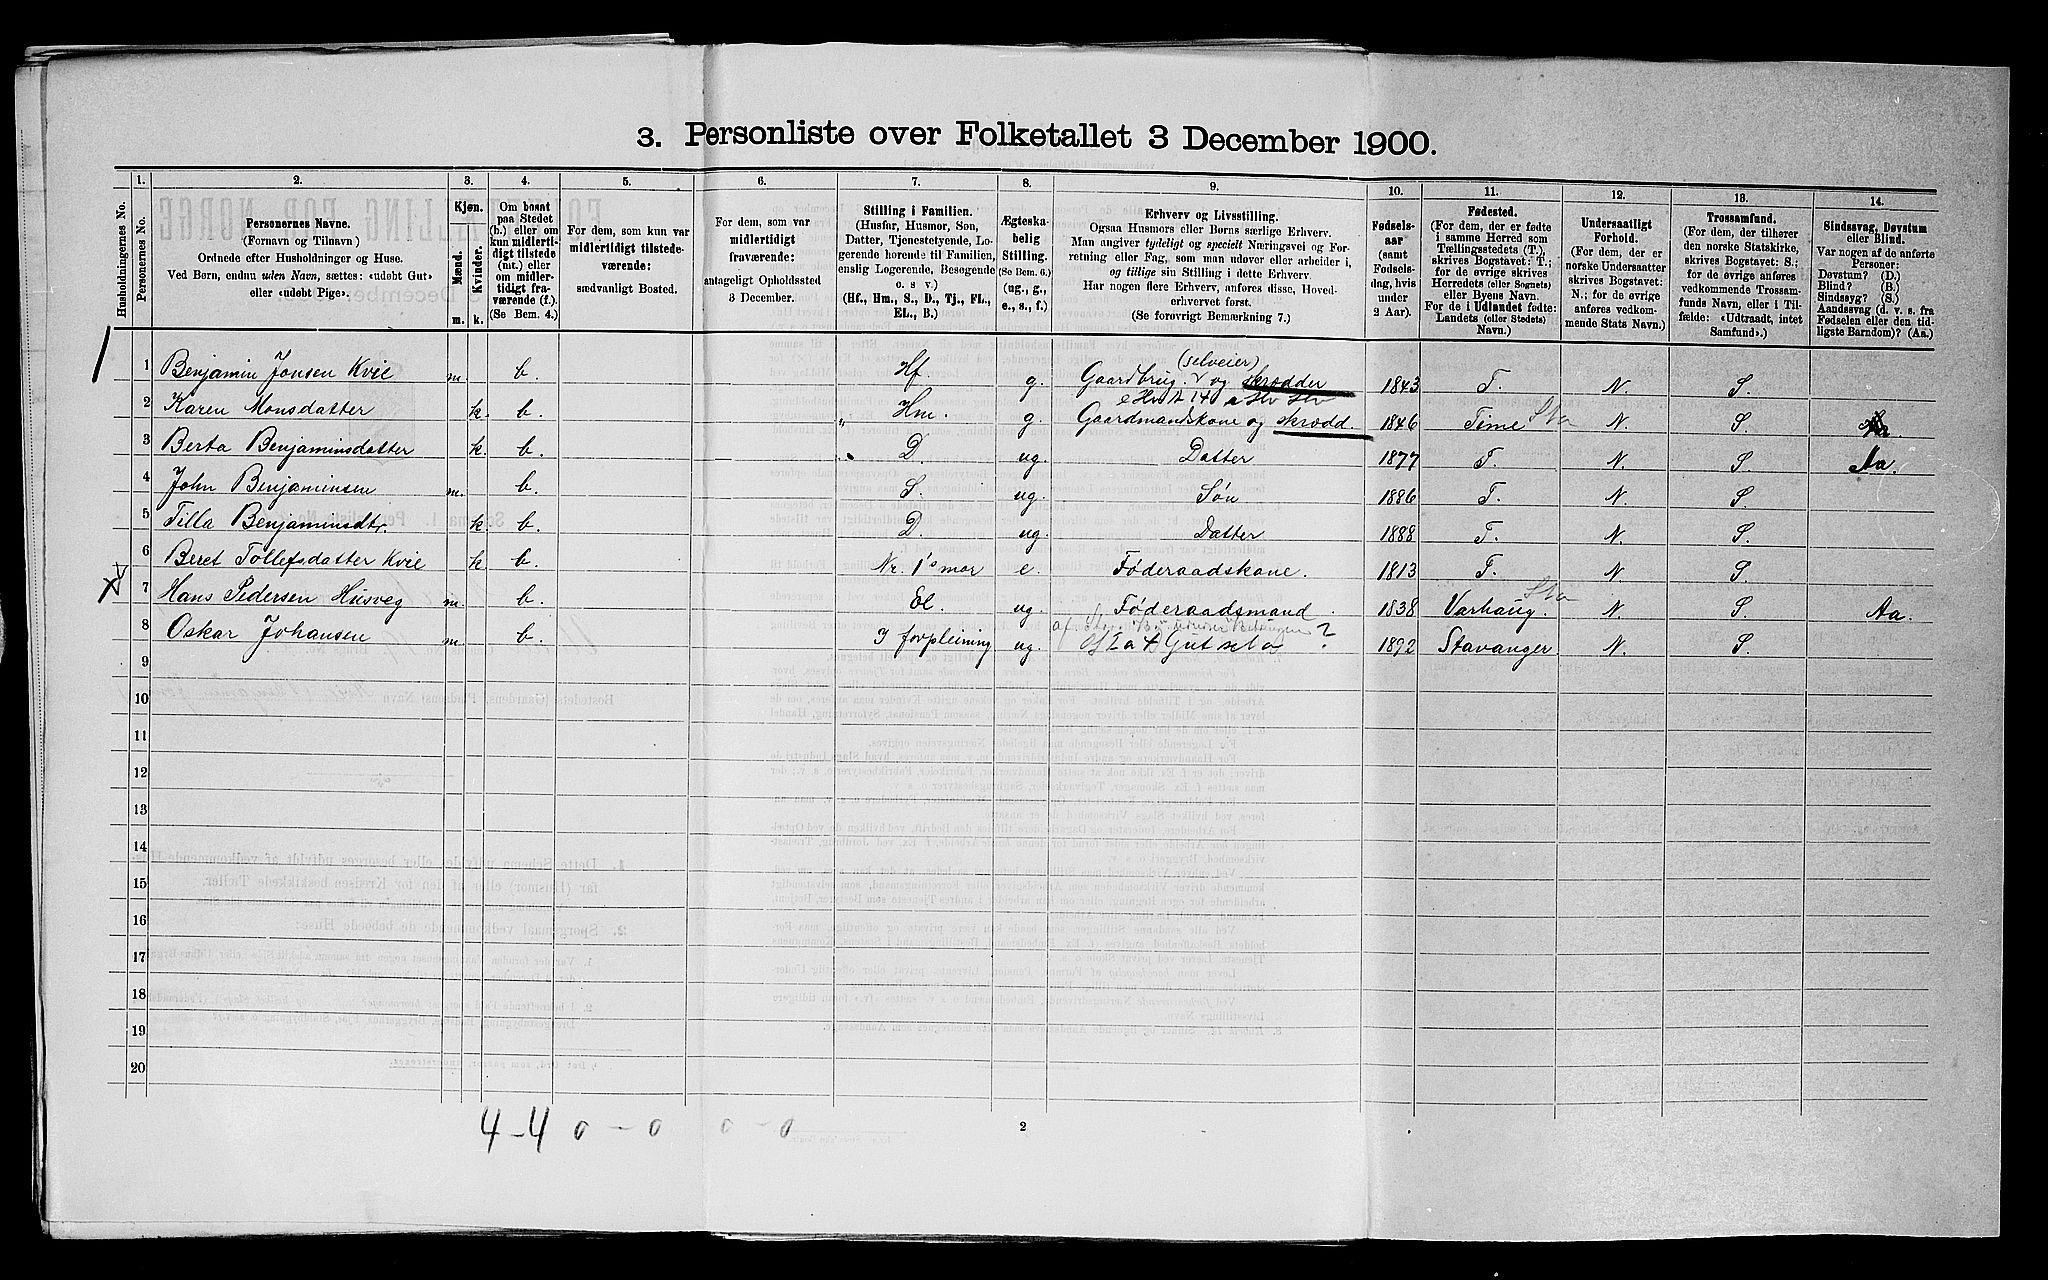 3. Personliste over Folketallet 3 December 1900.
Husholdningernes No.
1.
Personernes No.
2.
Personernes Navne.
(Fornavn og Tilnavn)
Ordnede efter Husholdninger og Huse.
Ved Børn, endnu uden Navn, sættes: «udøbt Gut»
eller «udøbt Pige».
3.
Kjøn.
Mænd.
Kvinder.
m. k.
4.
Om bosat
paa Stedet
(b.) eller om
kun midlerti-
digt tilstede
(mt.) eller
om midler-
tidigt fra-
værende (f.).
(Se Bem. 4.)
5.
For dem, som kun var
midlertidigt tilstede-
værende:
sædvanligt Bosted.
6.
For dem, som var
midlertidigt
fraværende:
antageligt Opholdssted
3 December.
7.
Stilling i Familien.
(Husfar, Husmor, Søn,
Datter, Tjenestetyende, Lo-
gerende hørende til Familien,
enslig Logerende, Besøgende
o. s v.)
(Hf., Hm., S., D., Tj., FL.,
EL., B.)
8.
Ægteska-
belig
Stilling.
(Se Bem. 6.)
(ug., g.,
e., s., f.)
9.
Erhverv og Livsstilling.
Ogsaa Husmors eller Børns særlige Erhverv.
Man angiver tydeligt og specielt Næringsvei og For-
retning eller Fag, som man udøver eller arbeider i,
og tillige sin Stilling i dette Erhverv.
Har nogen flere Erhverv, anføres disse, Hoved-
erhvervet først.
(Se forøvrigt Bemærkning 7.)
10.
Fødsels-
aar
(samt
Fødsels-
dag, hvis
under
2 Aar).
11.
Fødested.
(For dem, der er fødte
i samme Herred som
Tællingsstedets (T.),
skrives Bogstavet: T.;
for de øvrige skrives
Herredets (eller Sognets)
eller Byens Navn.
For de i Udlandet fødte:
Landets (eller Stedets)
Navn.)
12.
Undersaatligt
Forhold.
(For dem, der er
norske Undersaatter
skrives Bogstavet:
N.; for de øvrige
anføres vedkom-
mende Stats Navn.)
13.
Trossamfund.
(For dem, der tilhører
den norske Statskirke,
skrives Bogstavet: S.;
for de øvrige anføres
vedkommende Trossam-
funds Navn, eller i Til-
fælde: «Udtraadt, intet
Samfund».)
14.
Sindssvag, Døvstum
eller Blind.
Var nogen af de anførte
Personer:
Døvstum? (D.)
Blind? (B.)
Sindssyg? (S.)
Aandssvag (d. v. s. fra
Fødselen eller den tid-
ligste Barndom)? (Aa.)
(selveier)
1 Benjamin Jonsen Kvie m. b. Hf. g. Gaardbrug. og skrædder 1843 T. N. S.
2 Karen Monsdatter k. b. Hm. g. Gaardmandskone og skrædd. 1846 Time Sta N. S.
3 Berta Benjaminsdatter k. b. D. ug. Datter 1877 T. N. S. Aa.
4 John Benjaminsen m. b. S. ug. Søn 1886 T. N. S.
5 Tilla Benjaminsdtr. k. b. D. ug. Datter 1888 T. N. S.
6 Beret Tollefsdatter Kvie k b. Nr. 1's mor e. Føderaadskone. 1813 T. N S.
7 Hans Pedersen Husveg m. b. El. ug. Føderaadsmand. 1838 Varhaug. Sta N. S. Aa.
8 Oskar Johansen m. b. I forpleining ug. ? 1892 Stavanger N. S.
9
10
11
12
13
14
15
16
17
18
19
20
4-4 0-0 0-0
2